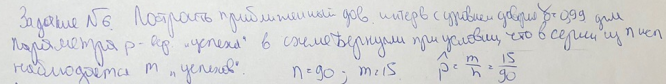 Задание №6. Построить приближенный дов. интерв с уровнем доверия γ=0,99 для
параметра p-вер "успеха" в схеме Бернулли при условии, что в серии из n исп
наблюдается m "успехов". n=90; m=15 p̂ = m/n = 15/90